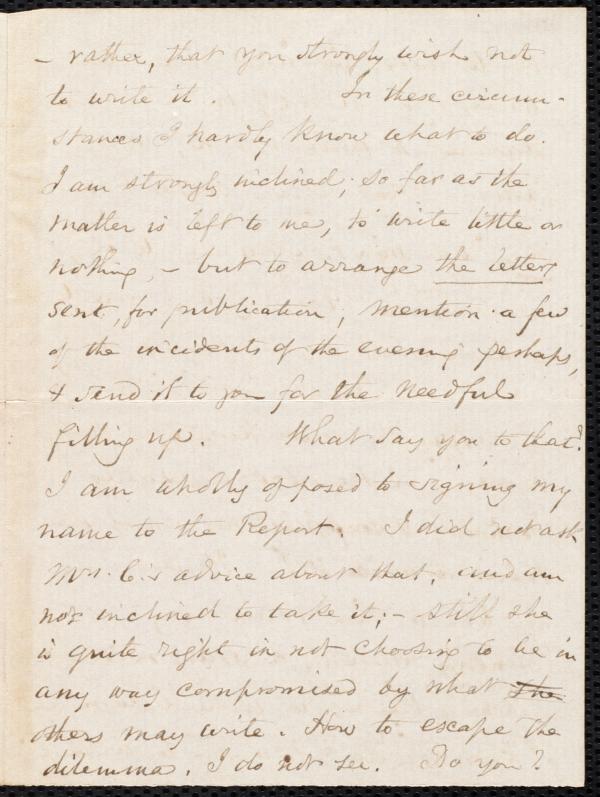 – rather, that you strongly wish not
to write it. In these circum-
stances I hardly know what to do.
I am strongly inclined, so far as the
matter is left to me, to write little or
nothing, – but to arrange the letters
sent, for publication, mention a few
of the incidents of the evening perhaps,
& send it to you for the needful
filling up. What say you to that?
I am wholly opposed to signing my
name to the Report. I did not ask
Mrs. C.'s advice about that, and am
not inclined to take it; – still she
is quite right in not choosing to be in
any way compromised by what she
others may write. How to escape the
dilemma, I do not see. Do you?